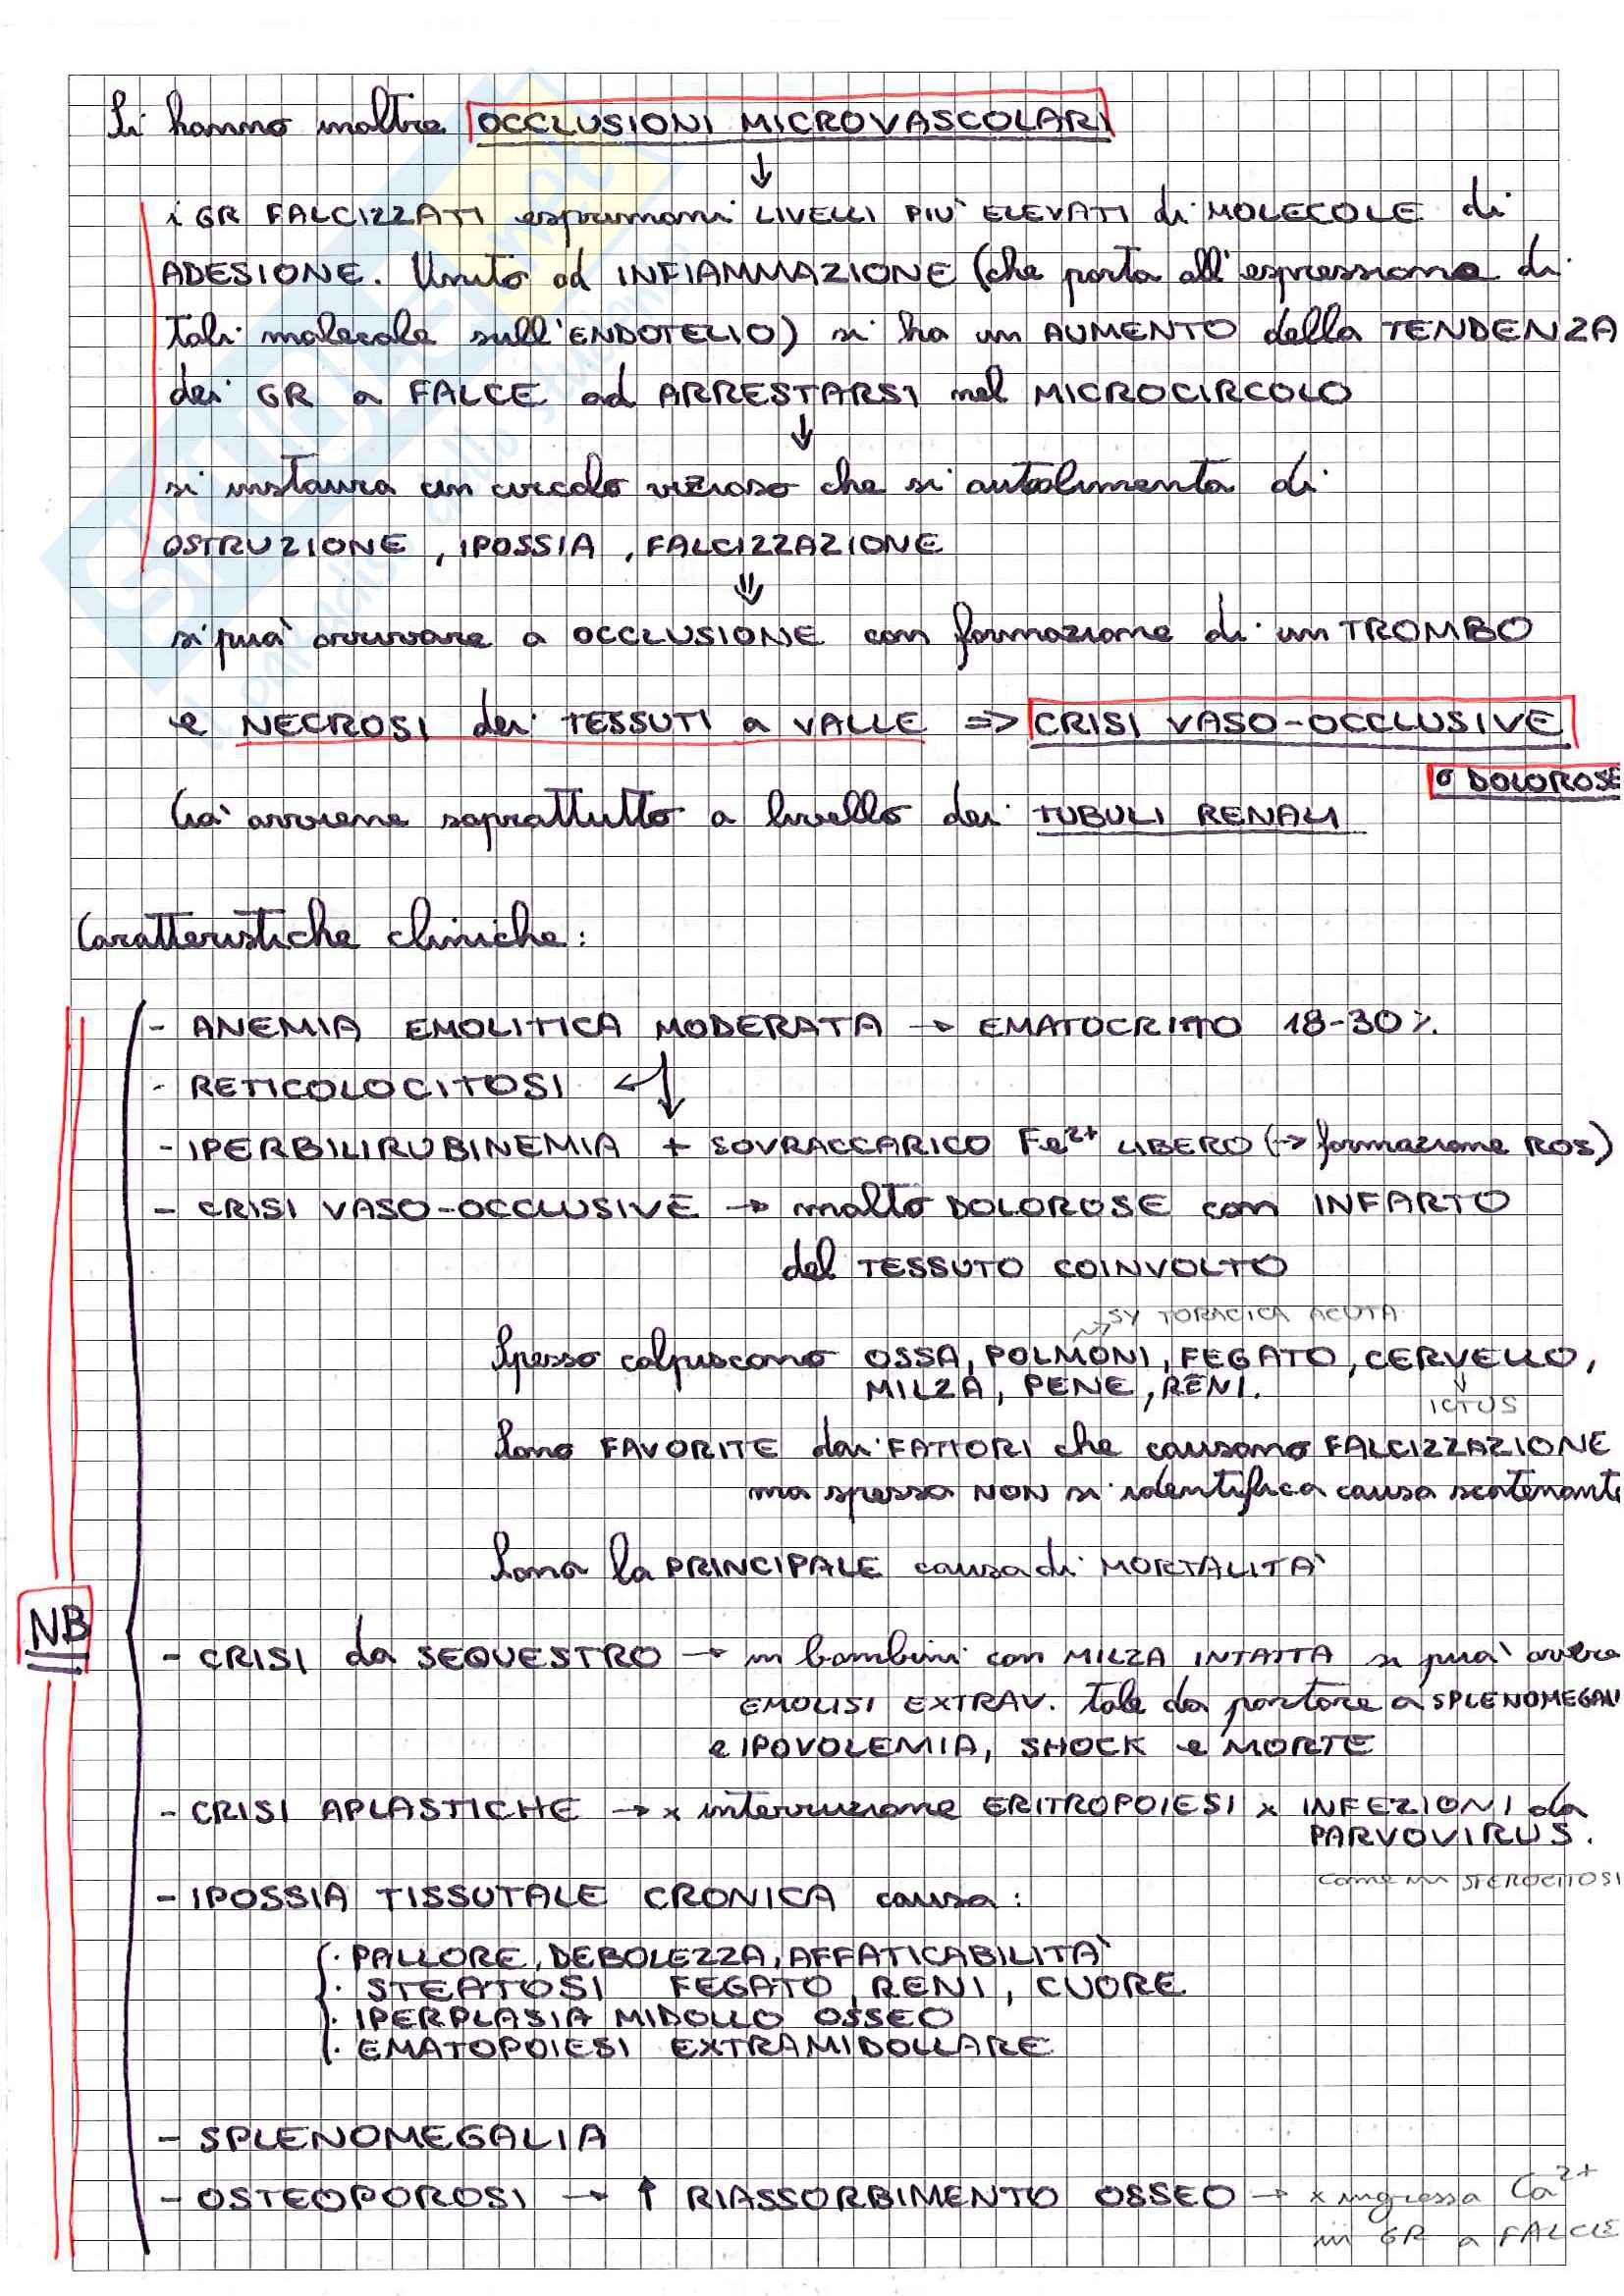 Si hanno inoltre OCCLUSIONI MICROVASCOLARI
↓
i GR FALCIZZATI esprimono LIVELLI PIÙ ELEVATI di MOLECOLE di
ADESIONE. Unito ad INFIAMMAZIONE (che porta all'espressione di
tali molecole sull'ENDOTELIO) si ha un AUMENTO della TENDENZA
dei GR a FALCE ad ARRESTARSI nel MICROCIRCOLO
↓
si instaura un circolo vizioso che si autoalimenta di
OSTRUZIONE, IPOSSIA, FALCIZZAZIONE
⇓
si può arrivare a OCCLUSIONE con formazione di un TROMBO
e NECROSI dei TESSUTI a VALLE => CRISI VASO-OCCLUSIVE
o DOLOROSE
Ciò avviene soprattutto a livello dei TUBULI RENALI
Caratteristiche cliniche:
- ANEMIA EMOLITICA MODERATA → EMATOCRITO 18-30%
- RETICOLOCITOSI ↵↓
- IPERBILIRUBINEMIA + SOVRACCARICO Fe2+ LIBERO (→ formazione ROS)
- CRISI VASO-OCCLUSIVE → molto DOLOROSE con INFARTO
del TESSUTO COINVOLTO
SY TORACICA ACUTA
Spesso colpiscono OSSA, POLMONI, FEGATO, CERVELLO,
MILZA, PENE, RENI.
ICTUS
Sono FAVORITE dai FATTORI che causano FALCIZZAZIONE
ma spesso NON si identifica causa scatenante
Sono la PRINCIPALE causa di MORTALITÀ
NB
- CRISI da SEQUESTRO → in bambini con MILZA INTATTA si può avere
EMOLISI EXTRAV. tale da portare a SPLENOMEGALI
e IPOVOLEMIA, SHOCK e MORTE
- CRISI APLASTICHE → x interruzione ERITROPOIESI x INFEZIONI da
PARVOVIRUS.
come in SFEROCITOSI
- IPOSSIA TISSUTALE CRONICA causa:
· PALLORE, DEBOLEZZA, AFFATICABILITÀ
· STEATOSI FEGATO, RENI, CUORE
· IPERPLASIA MIDOLLO OSSEO
· EMATOPOIESI EXTRAMIDOLLARE
- SPLENOMEGALIA
- OSTEOPOROSI → ↑ RIASSORBIMENTO OSSEO → x ingresso Ca2+
in GR a FALCE